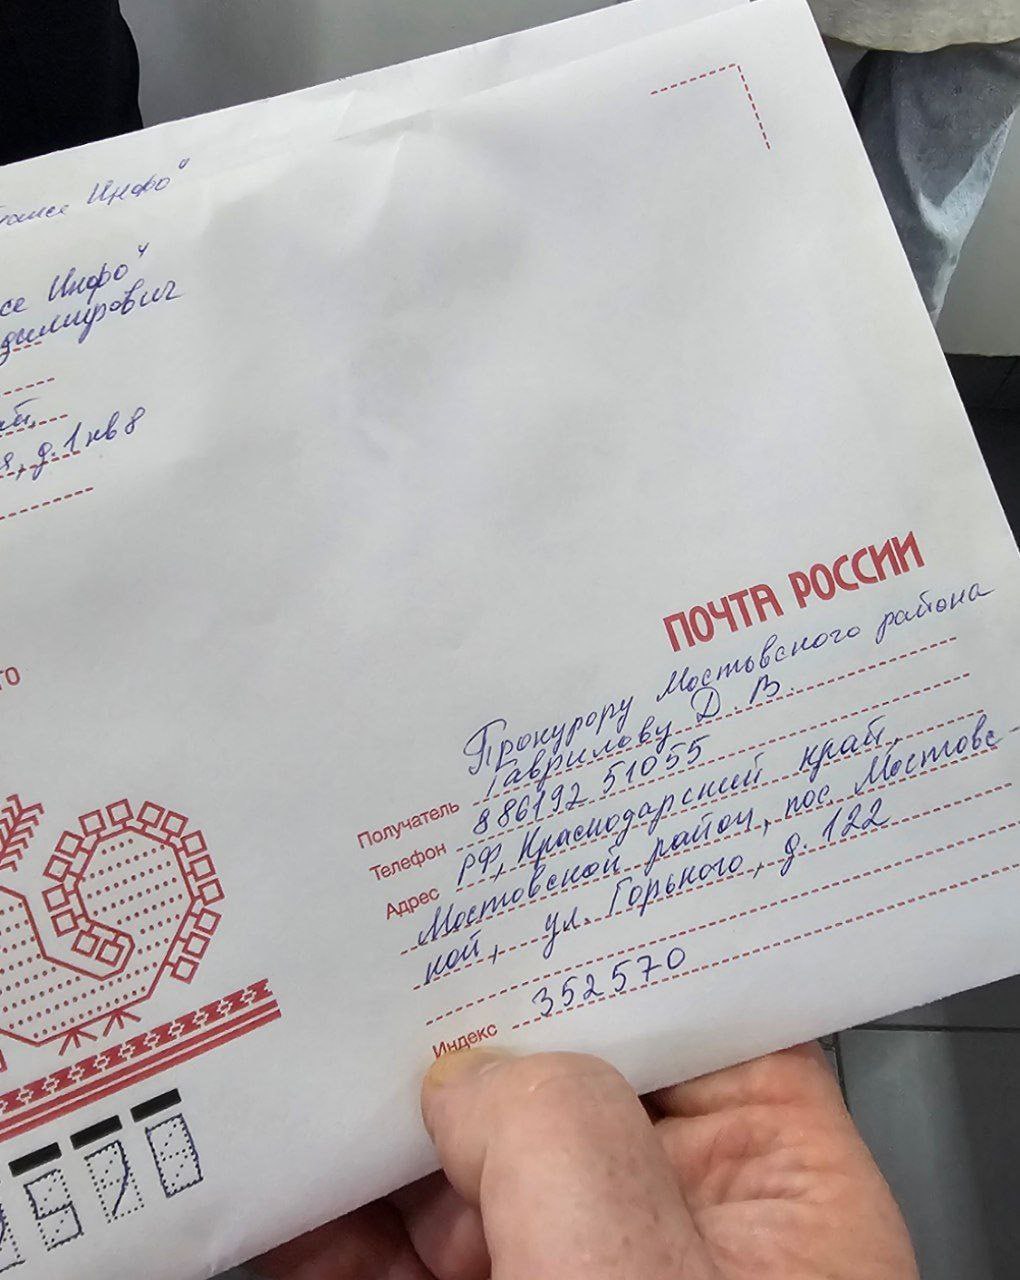 Инфо"
се Инфо"
димирович
ай,
я, д. 1 кв 8
ПОЧТА РОССИИ
го
Прокурору Мостовского района
Получатель Гаврилову Д. В.
Телефон 886192 51055
Адрес РФ, Краснодарский край,
Мостовской район, пос. Мостовс-
кой, ул. Горького, д. 122
Индекс 352570
570